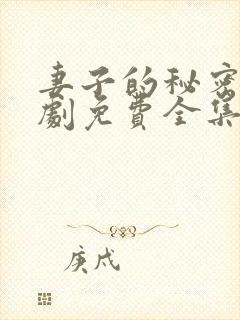 妻子的秘密
劇免费全集
庚戍